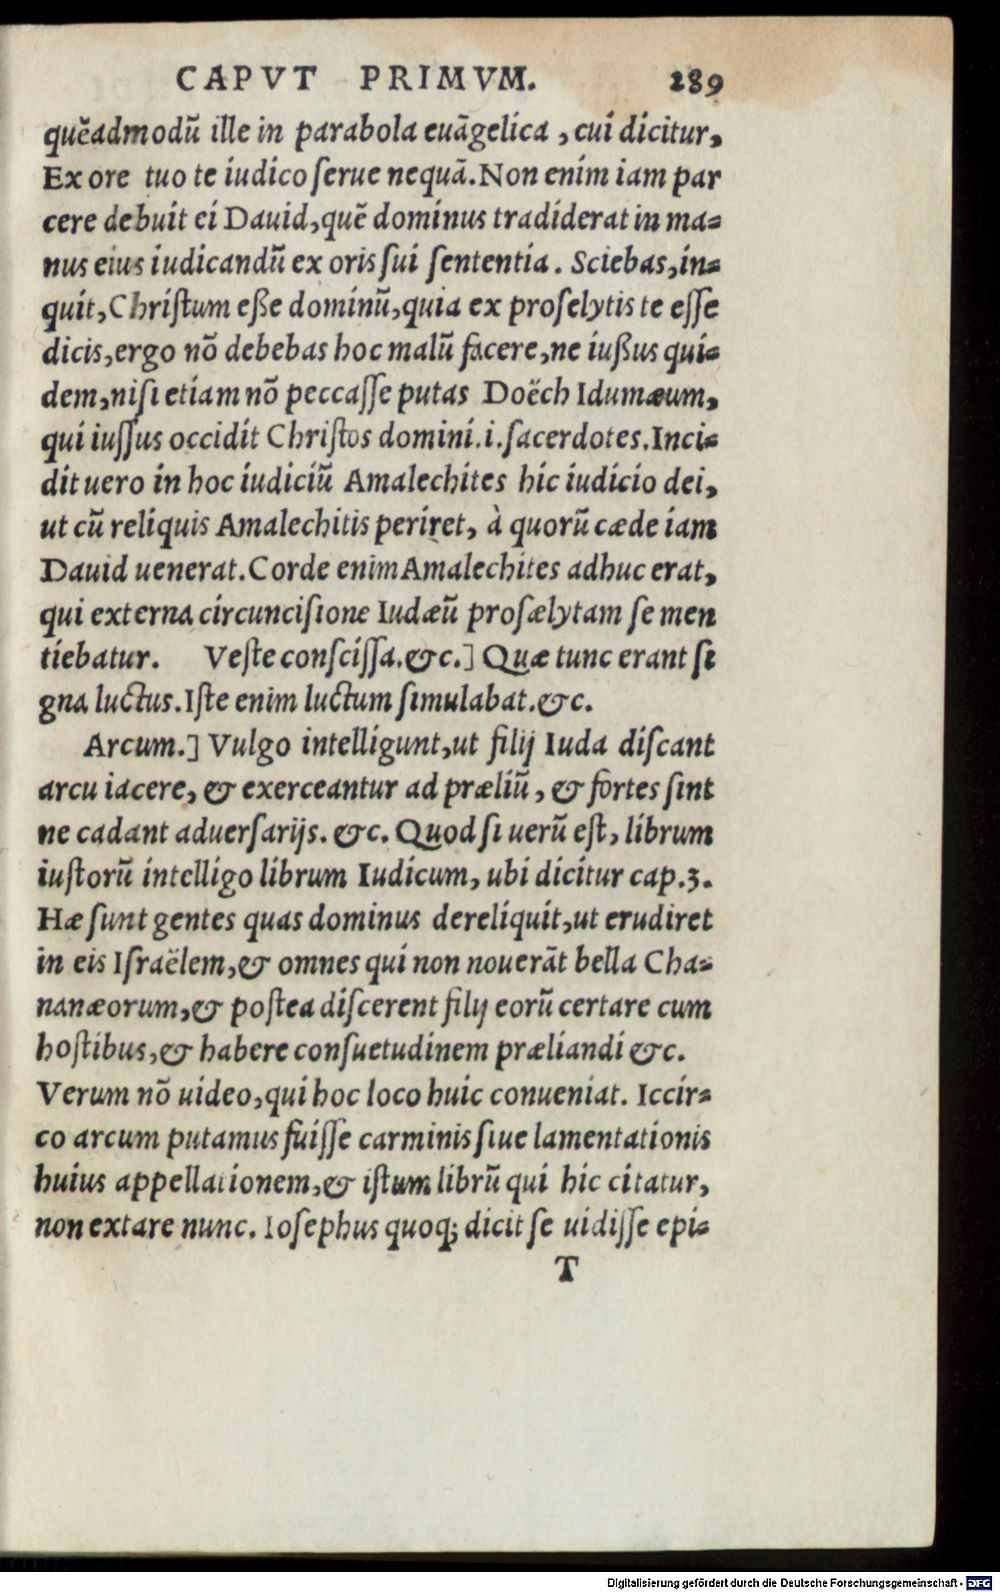 CAPVT PRIMVM. 289
quẽadmodũ ille in parabola euãgelica , cui dicitur,
Ex ore tuo te iudico ſerue nequã. Non enim iam par
cere debuit ei Dauid, quẽ dominus tradiderat in ma-
nus eius iudicandũ ex oris ſui ſententia. Sciebas, in-
quit, Chriſtum eße dominũ, quia ex proſelytis te eſſe
dicis, ergo nõ debebas hoc malũ facere, ne iußus qui-
dem, niſi etiam nõ peccaſſe putas Doëch Idumæum,
qui iuſſus occidit Chriſtos domini .i. ſacerdotes. Inci-
dit uero in hoc iudiciũ Amalechites hic iudicio dei,
ut cũ reliquis Amalechitis periret, à quorũ cæde iam
Dauid uenerat. Corde enim Amalechites adhuc erat,
qui externa circunciſione Iudæũ proſælytam ſe men
tiebatur. Veſte conſciſſa. &c.] Quæ tunc erant ſi
gna luctus. Iſte enim luctum ſimulabat. &c.
Arcum.] Vulgo intelligunt, ut filij Iuda diſcant
arcu iacere, & exerceantur ad præliũ, & fortes ſint
ne cadant aduerſarijs. &c. Quod ſi uerũ eſt, librum
iuſtorũ intelligo librum Iudicum, ubi dicitur cap.3.
Hæ ſunt gentes quas dominus dereliquit, ut erudiret
in eis Iſraëlem, & omnes qui non nouerãt bella Cha-
nanæorum, & poſtea diſcerent filij eorũ certare cum
hoſtibus, & habere conſuetudinem præliandi &c.
Verum nõ uideo, qui hoc loco huic conueniat. Iccir-
co arcum putamus fuiſſe carminis ſiue lamentationis
huius appellationem, & iſtum librũ qui hic citatur,
non extare nunc. Ioſephus quoq; dicit ſe uidiſſe epi-
T
Digitalisierung gefördert durch die Deutsche Forschungsgemeinschaft - DFG